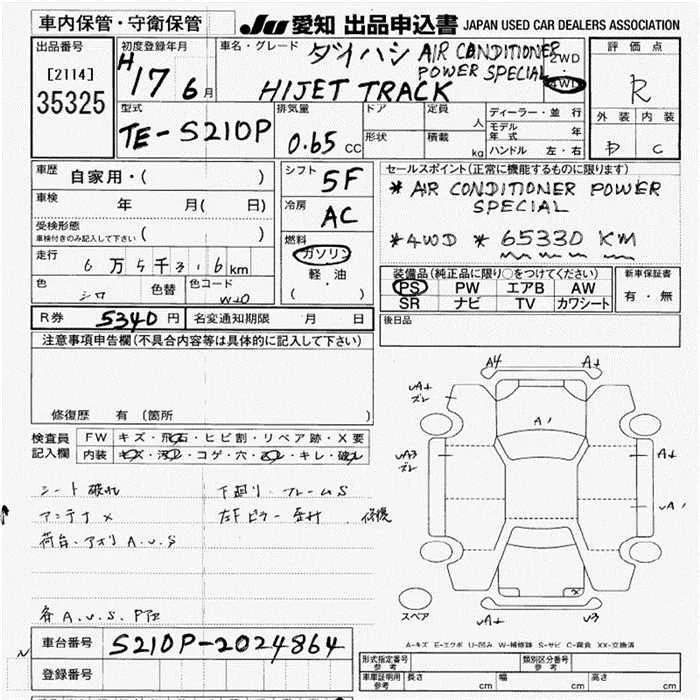 車内保管・守衛保管 JU 愛知 出品申込書 JAPAN USED CAR DEALERS ASSOCIATION
出品番号
[2114]
35325
初度登録年月
H17 6月
車名・グレード
ダイハシ AIR CONDITIONER
POWER SPECIAL
HIJET TRACK
2WD
・
4WD
評価点
R
外装 内装
C
型式
TE-S210P
排気量
0.65 CC
ドア
形状
定員
人
積載
kg
ディーラー・並行
モデル年式 年
ハンドル 左・右
車歴
自家用・( )
車検
年 月( 日)
受検形態
車検付きのみ記入して下さい ( )
走行
6万5千3 6km
色
シロ
色替
色コード
W40
シフト
5F
冷房
AC
燃料
ガソリン
軽油
( ・ )
セールスポイント(正常に機能するものに限ります)
* AIR CONDITIONER POWER
SPECIAL
*4WD * 65330 KM
装備品(純正品に限り○をつけてください)
PS PW エアB AW
SR ナビ TV カワシート
新車保証書
有・無
後日品
R券 5340円 名変通知期限 月 日
注意事項申告欄(不具合内容等は具体的に記入して下さい)
修復歴 有(箇所 )
検査員
記入欄
FW キズ・飛石・ヒビ割・リペア跡・X要
内装 キズ・汚レ・コゲ・穴・・キレ・破レ
シート破れ
下回り・フレームS
アンテナ×
左Fピラー 修復
荷台・アオリ A.U.S
各A.U.S.
A4 A+
UA+
ズレ
A1
UA3
ズレ
A+
UA1
UA+ U3
スペア
A-キズ E-エクボ U-凹み W-補修跡 S-サビ C-腐食 XX-交換済
車台番号 S210P-2024864
登録番号
形式指定番号
参考
類別区分番号
参考
車庫証明用
参考
長さ cm 幅 cm 高さ cm